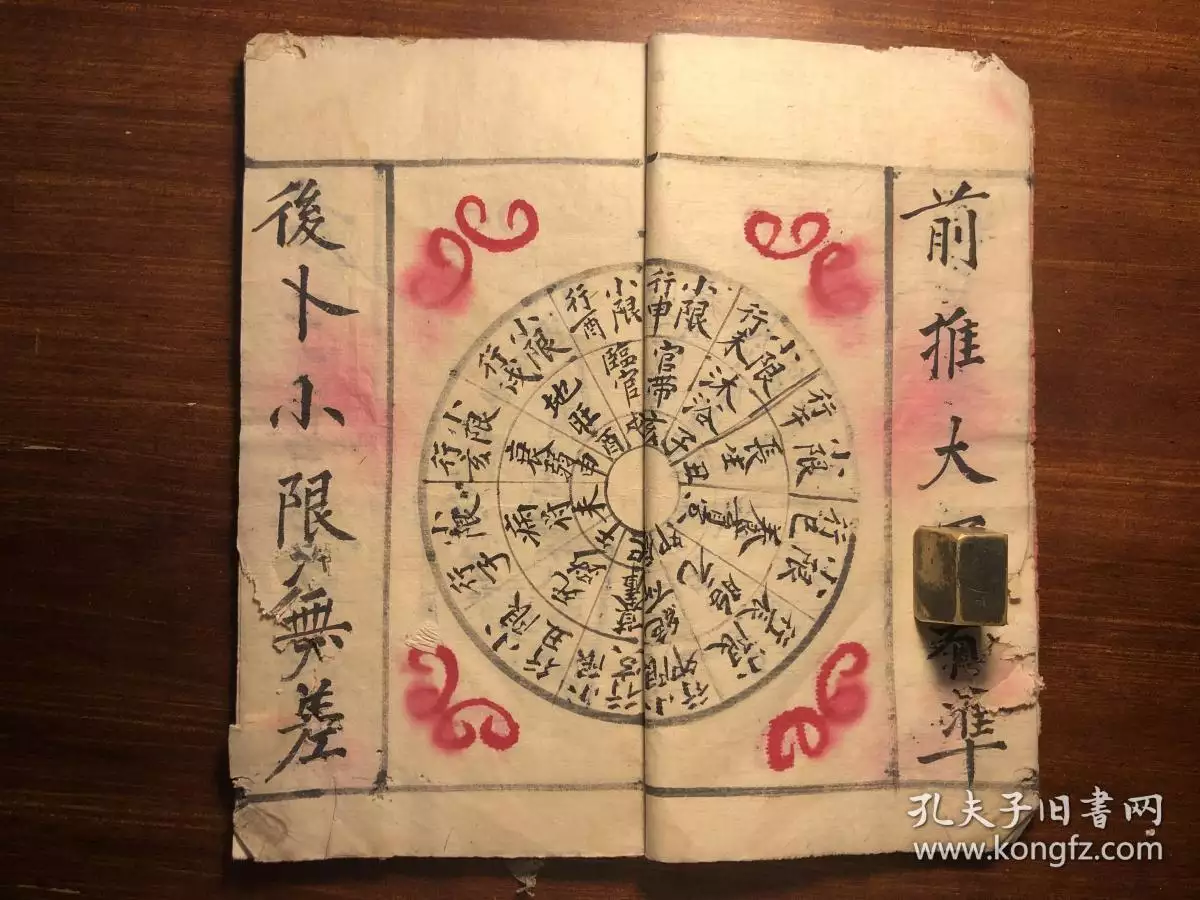 前推大
準
後卜小限
無差
小限
行申
官带
亥
小限
行未
沐浴
子
小限
行午
長生
丑
小限
行巳
養
小限
行辰
小限
行卯
絕
小限
行丑
小限
行子
病
未
小限
行亥
衰
申
小限
行戌
地旺
酉
小限
行酉
臨官
孔夫子旧書网
www.kongfz.com